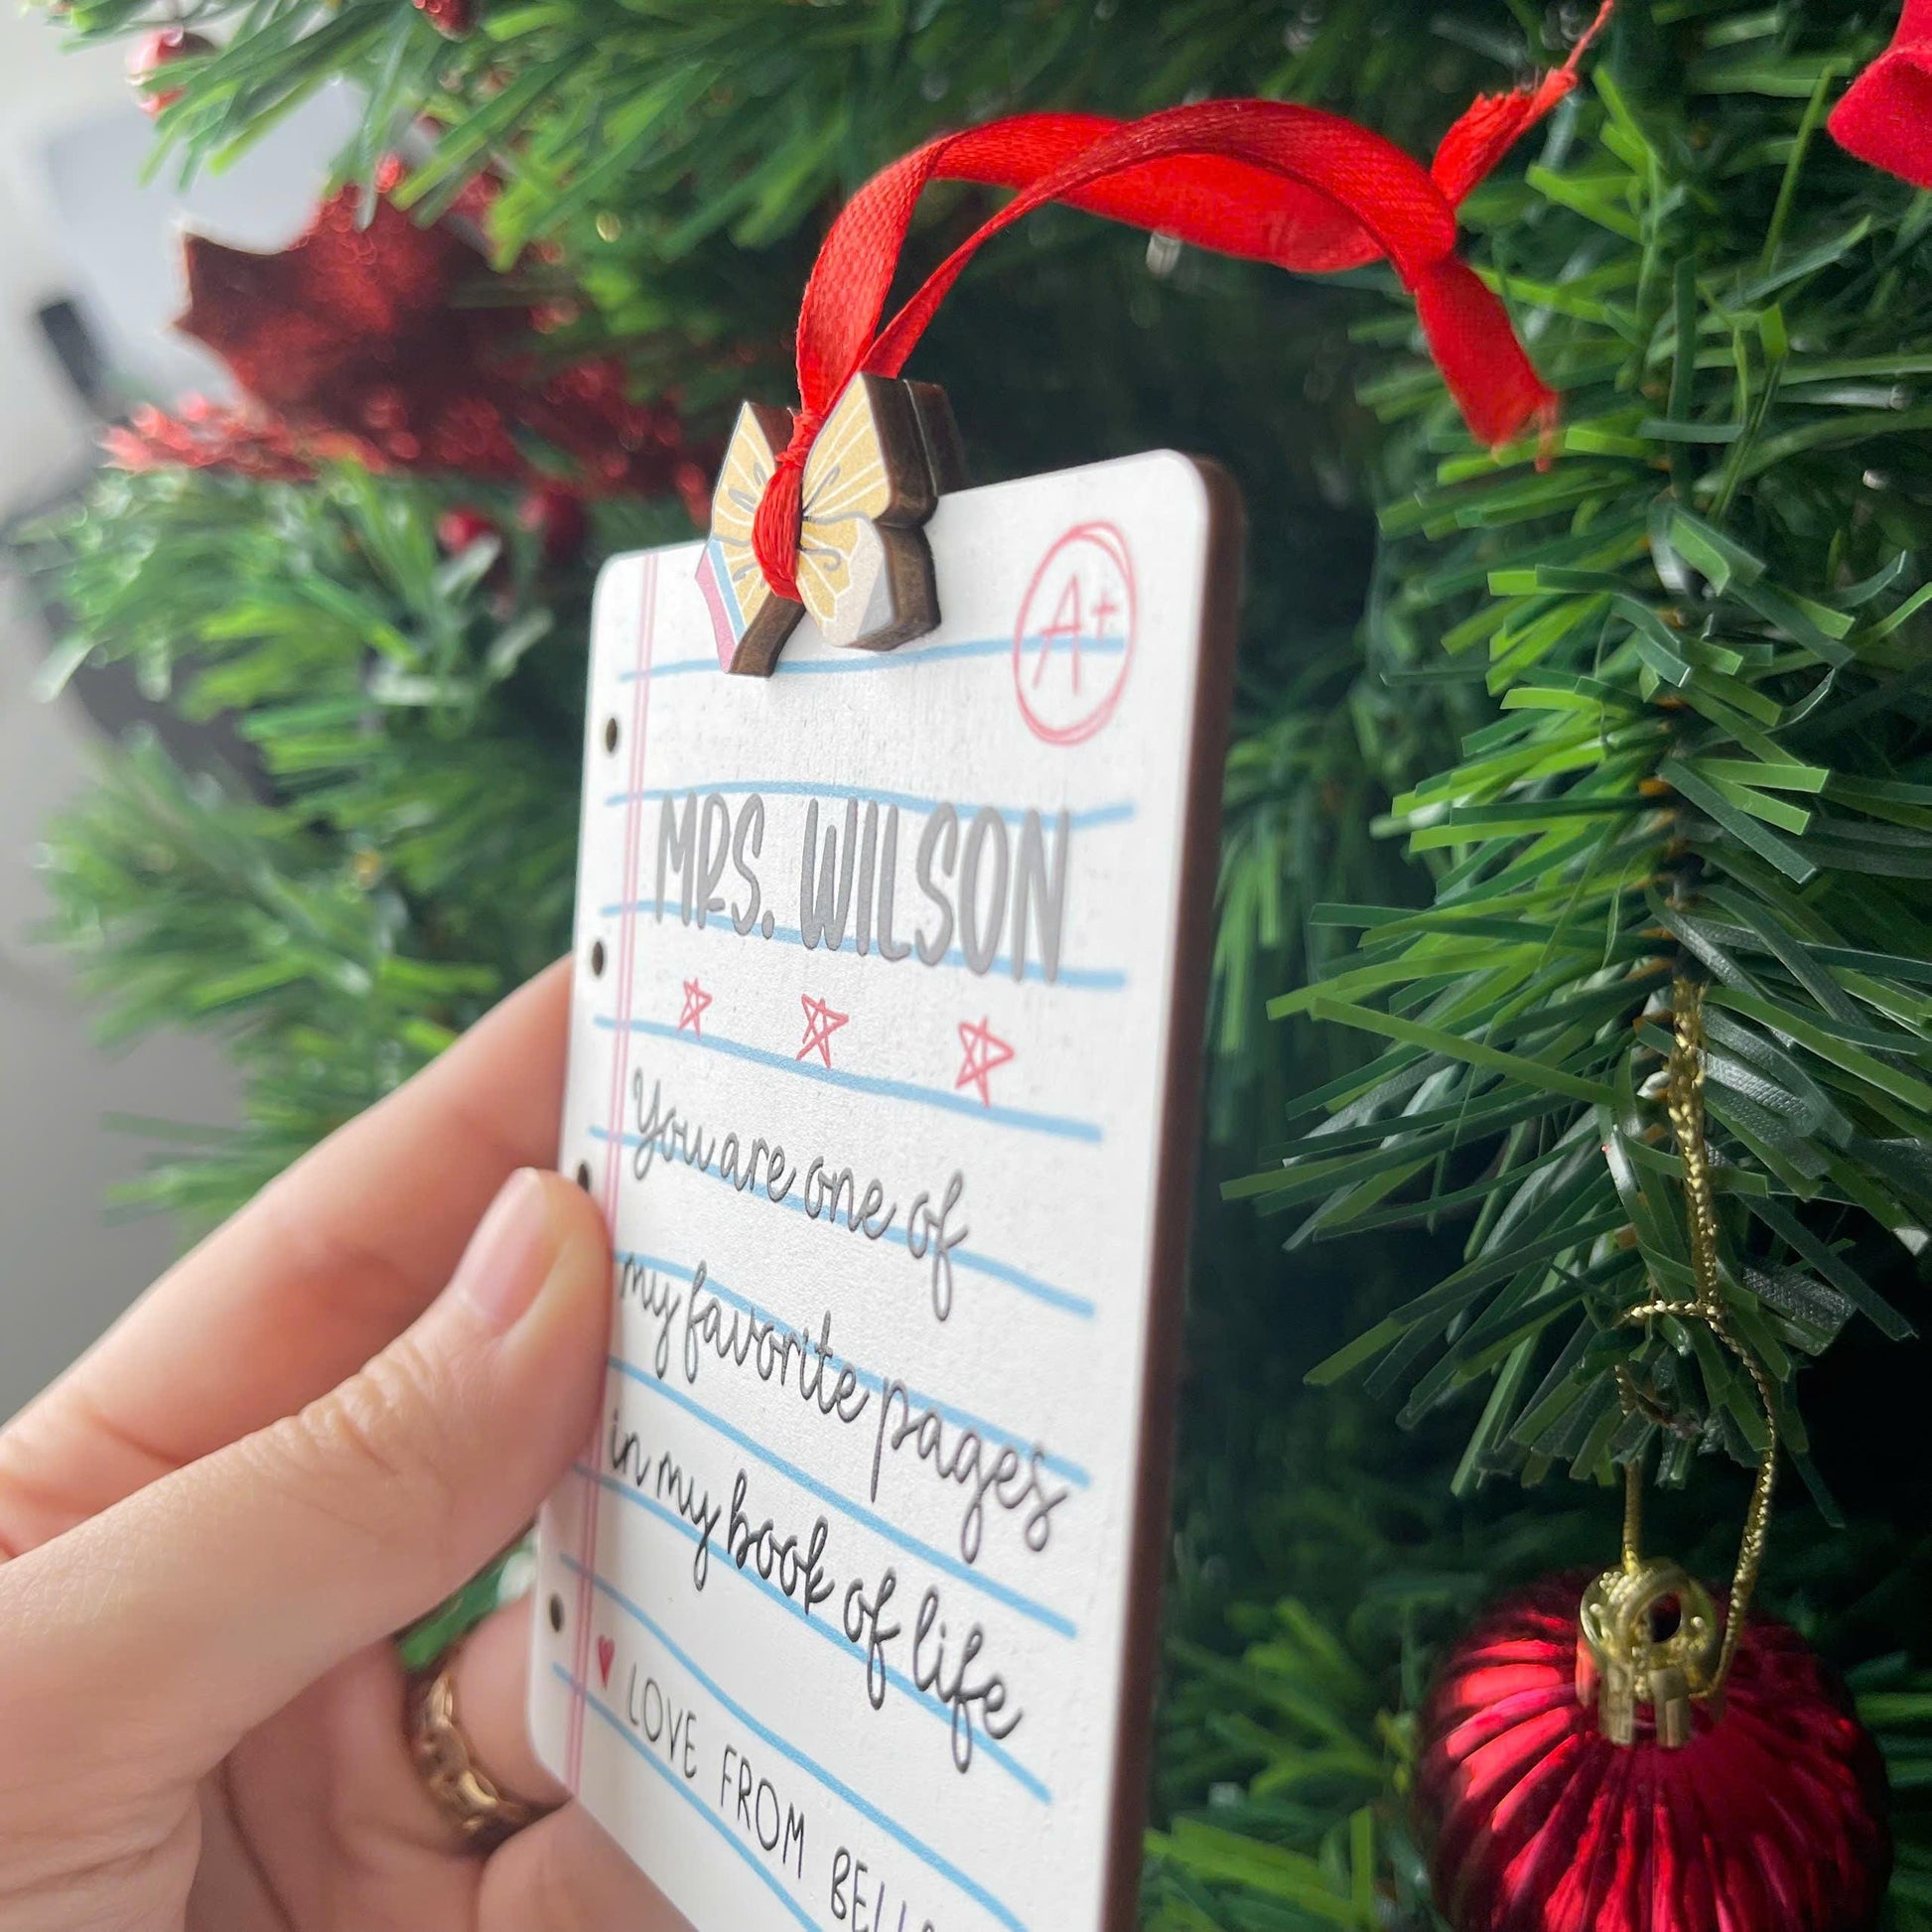 A+
MRS. WILSON
You are one of
my favorite pages
in my book of life
LOVE FROM